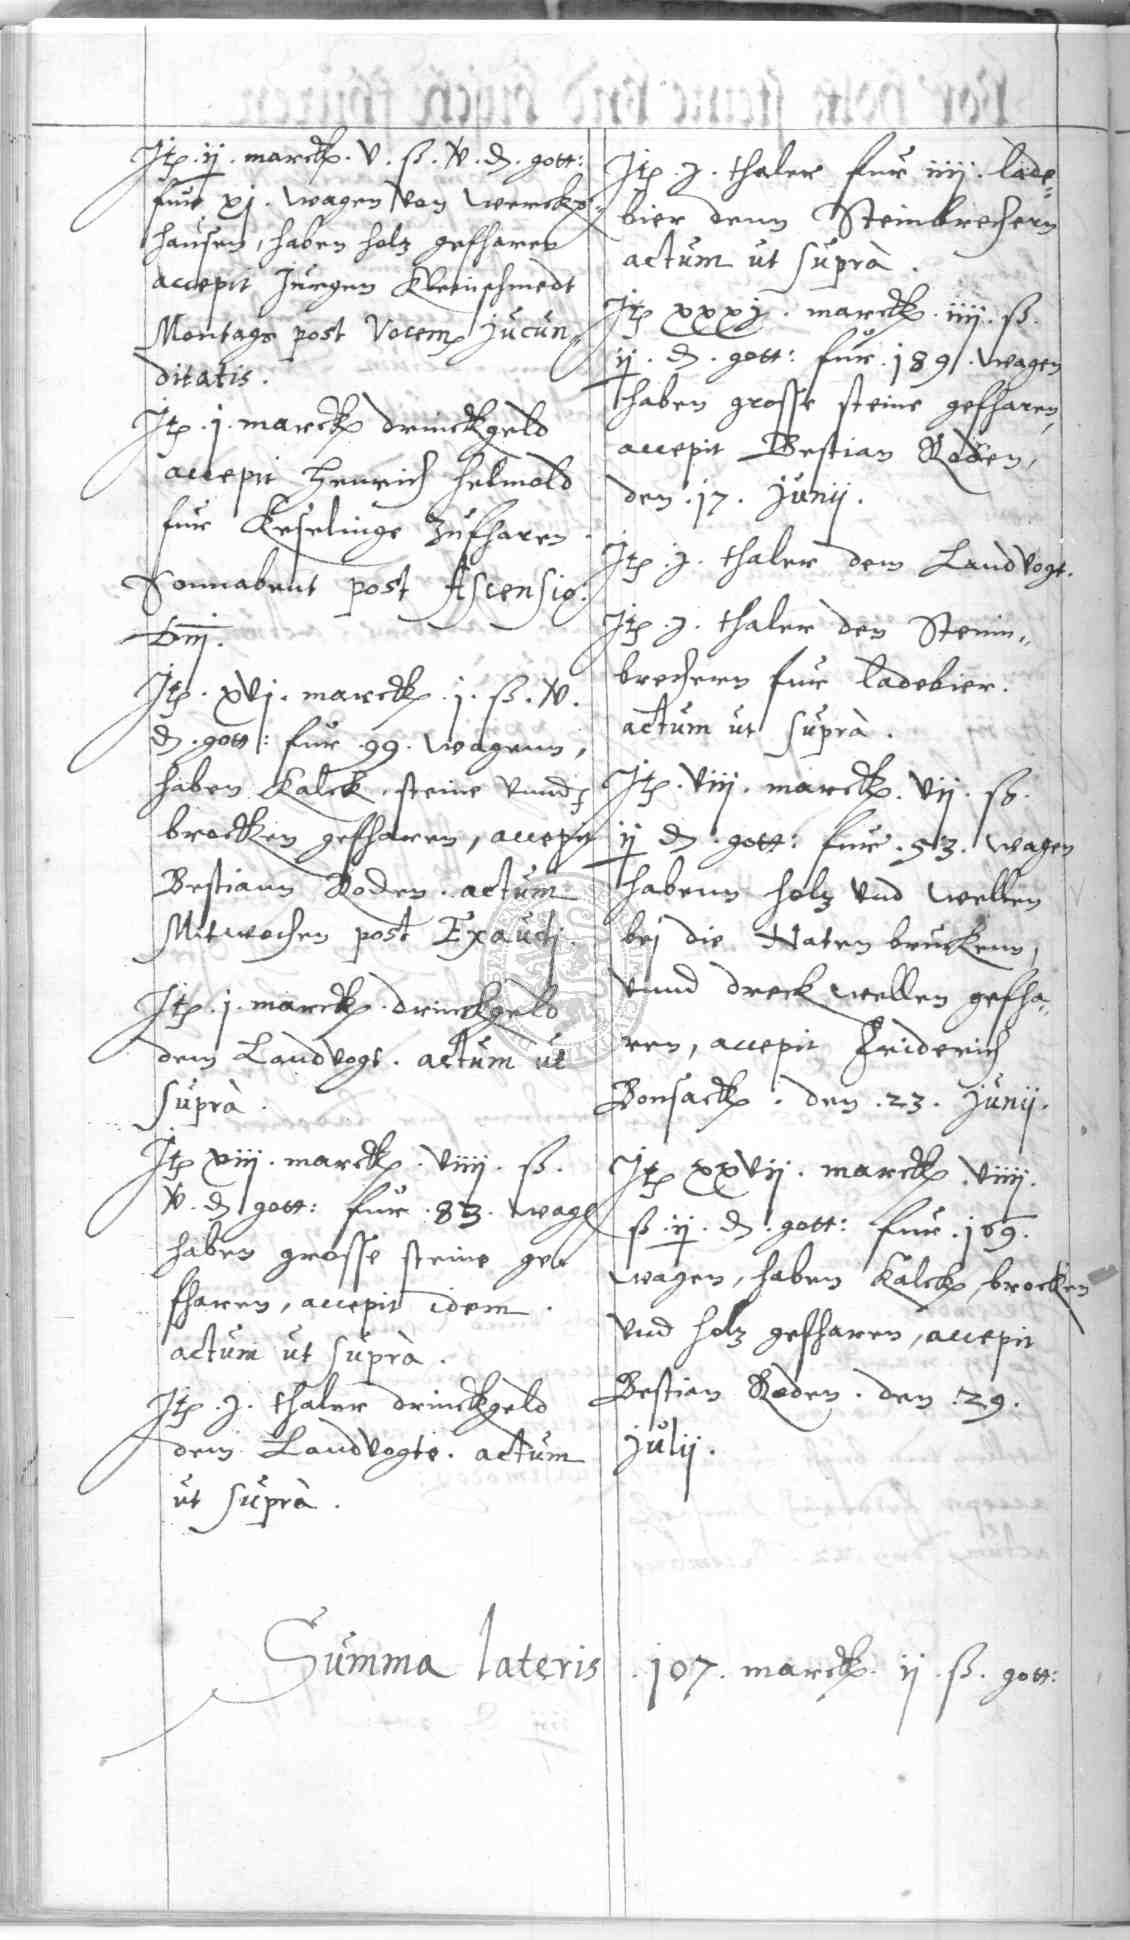 Jtp. ij. marck. v. ß. iv. d. gott:
fur xj. wagen von Wercks„
hausen, haben holz gefharen
accepit Jurgen Kleinschmedt
Montags post Vocem jucun„
ditatis.
Jtp. j. marck drinckgeld
accepit Henrich Helmold
fur Keselinge zufharen.
Sonnabent post Ascensio:
Dni.
Jtp. xvj. marck. j. ß. iv.
d. gott: fur 99. wagenn,
haben Kalck, steine vnnd
brocken gefharen, accepit
Bestiann Roden. actum
Mitwochen post Exaudi.
Jtp. j. marck. drinckgeld
dem Landvogt. actum ut
supra.
Jtp xiij. marck. viiij. ß.
iv. d gott: fur 83. wage
haben grosse steine ge„
fharen, accepit idem.
actum ut supra.
Jtp. j. thaler drinckgeld
dem Landvogte. actum
ut supra.
Jtp. j. thaler fur iiij. lade„
bier denn Steinbrechern
actum ut supra.
Jtp xxxj. marck. iiij. ß.
ij. d. gott: fur 189. wagen
haben grosse steine gefharen,
accepit Bestian Roden,
den 17. Junij.
Jtp. j. thaler dem Landvogt.
Jtp. j. thaler den Stenin„
brechern fur ladebier.
actum ut supra.
Jtp. viij. marck. vij. ß.
ij d. gott: fur 53. wagen
habenn holz vnd wellen
bej die Naten bruckenn,
vnnd dreck wellen gefha„
ren, accepit Friderich
Bonsack. den 23. Junij.
Jtp xxvij. marck. viiij.
ß ij. d. gott: fur 169.
wagen, haben Kalck, brocken
vnd holz gefharen, accepit
Bestian Roden. den 29.
Julij.
Summa lateris. 107. marck. ij. ß. gott: